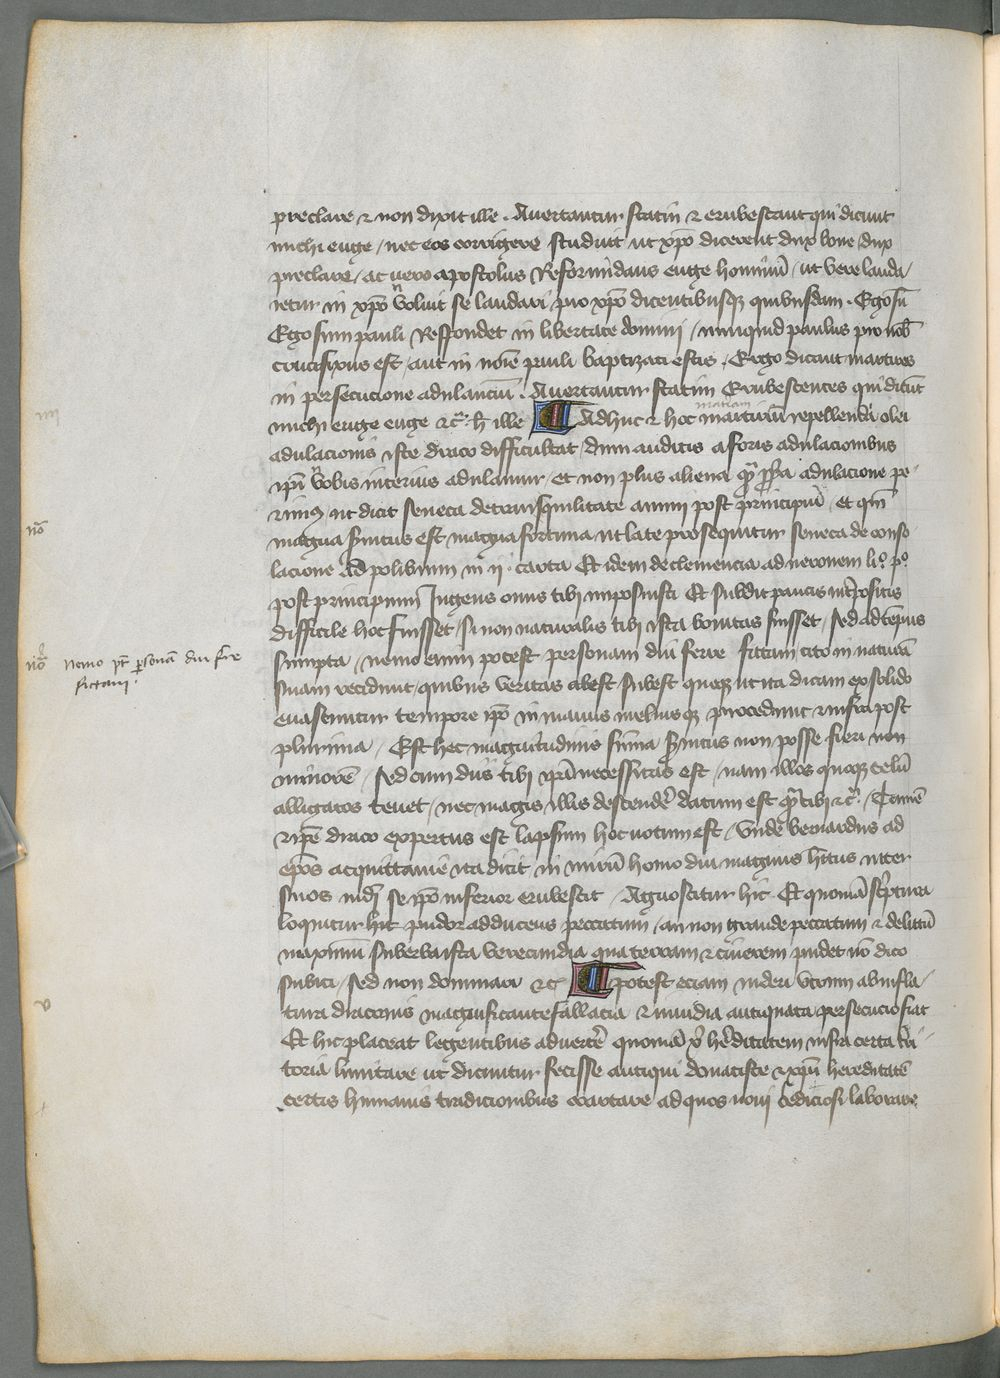 preclare & non dixit ille . Auertantur statim & erubescant qui dicunt
michi euge / nec eos corrigere studuit ut xpo dicerent dnx bone dnx
preclare / ac uero apostolus Reformidans euge hominũ / ut vere lauda/
retur in xpo n̄ voluit se laudari pro xpo dicentibusqꝫ quibusdam . Ego sũ
Ego sum pauli Respondet in libertate domini / nunquid paulus pro nob̄
crucifixus est / aut in noīe pauli baptizati estis . Ergo dicant martires
in persecucione adulanciũ . Auertantur statim Erubescentes qui dicũt
michi euge euge &c̃ . h̄ ille Adhuc & hoc martirũ repellendi olei
adulacionis iste draco difficultat / dum auditis a foris adulacionibus
ip̄i vobis interius adulamur / et non plus aliena adulacione pe/
rimus ut dicit seneca de tranquilitate animi post principiũ et
magna sp̄ritus est magna fortuna ut late prosequitur seneca de conso
lacione Ad polibium in ii . carta Et idem de clemencia ad neronem li.º p.º
post principium Ingens onus tibi imposuisti Et subdit paucis int̄positis
difficile hoc fuisset / si non naturalis tibi ista bonitas fuisset / sed ad tẽpus
sumpta / nemo enim potest personam diu ferre fictam cito in naturã
suam recidunt / quibus veritas abest / subest queqꝫ ut ita dicam ex solido
enascuntur tempore ip̄o in maius meliusqꝫ procedunt & infra post
plurima / Est hec magnitudinis sũma sp̄ritus non posse fieri non
minorẽ / sed cum diis tibi necessitas est / nam illos quoqꝫ celũ
alligatos tenet / nec magis illis descendẽ datum est tibi &c̃ . Tamẽ
draco expertus est lapsum hoc uotum est / vnde bernardus ad
ep̄os ita dicit in mirũ homo diu magnus inter
suos se ip̄o inferior erubescit / Agnoscitur hic Et quoniã sc̄ptura
loquitur hic pudor adducens peccatum / an non grande peccatum & delictũ
maximũ superba ista verecundia qua terram & cinerem pudet nõ dico
subici / sed non dominari &c̃ potest eciam uideri vtrum ab infla/
tura draconis magnificante fallacia & inuidia antiquata persecucio fiat
Et hic placeat legentibus aduertẽ quoniã xp̄i hẽditatem infra certa tẽri/
toria limitare ut dicuntur fecisse antiqui donatiste & xp̄i hereditatẽ
certis humanis tradicionibus coartare ad quos noui cediciosi laborare
nō
nō nemo pt̄ p̄sonã diu fr̄re
fictam .
v